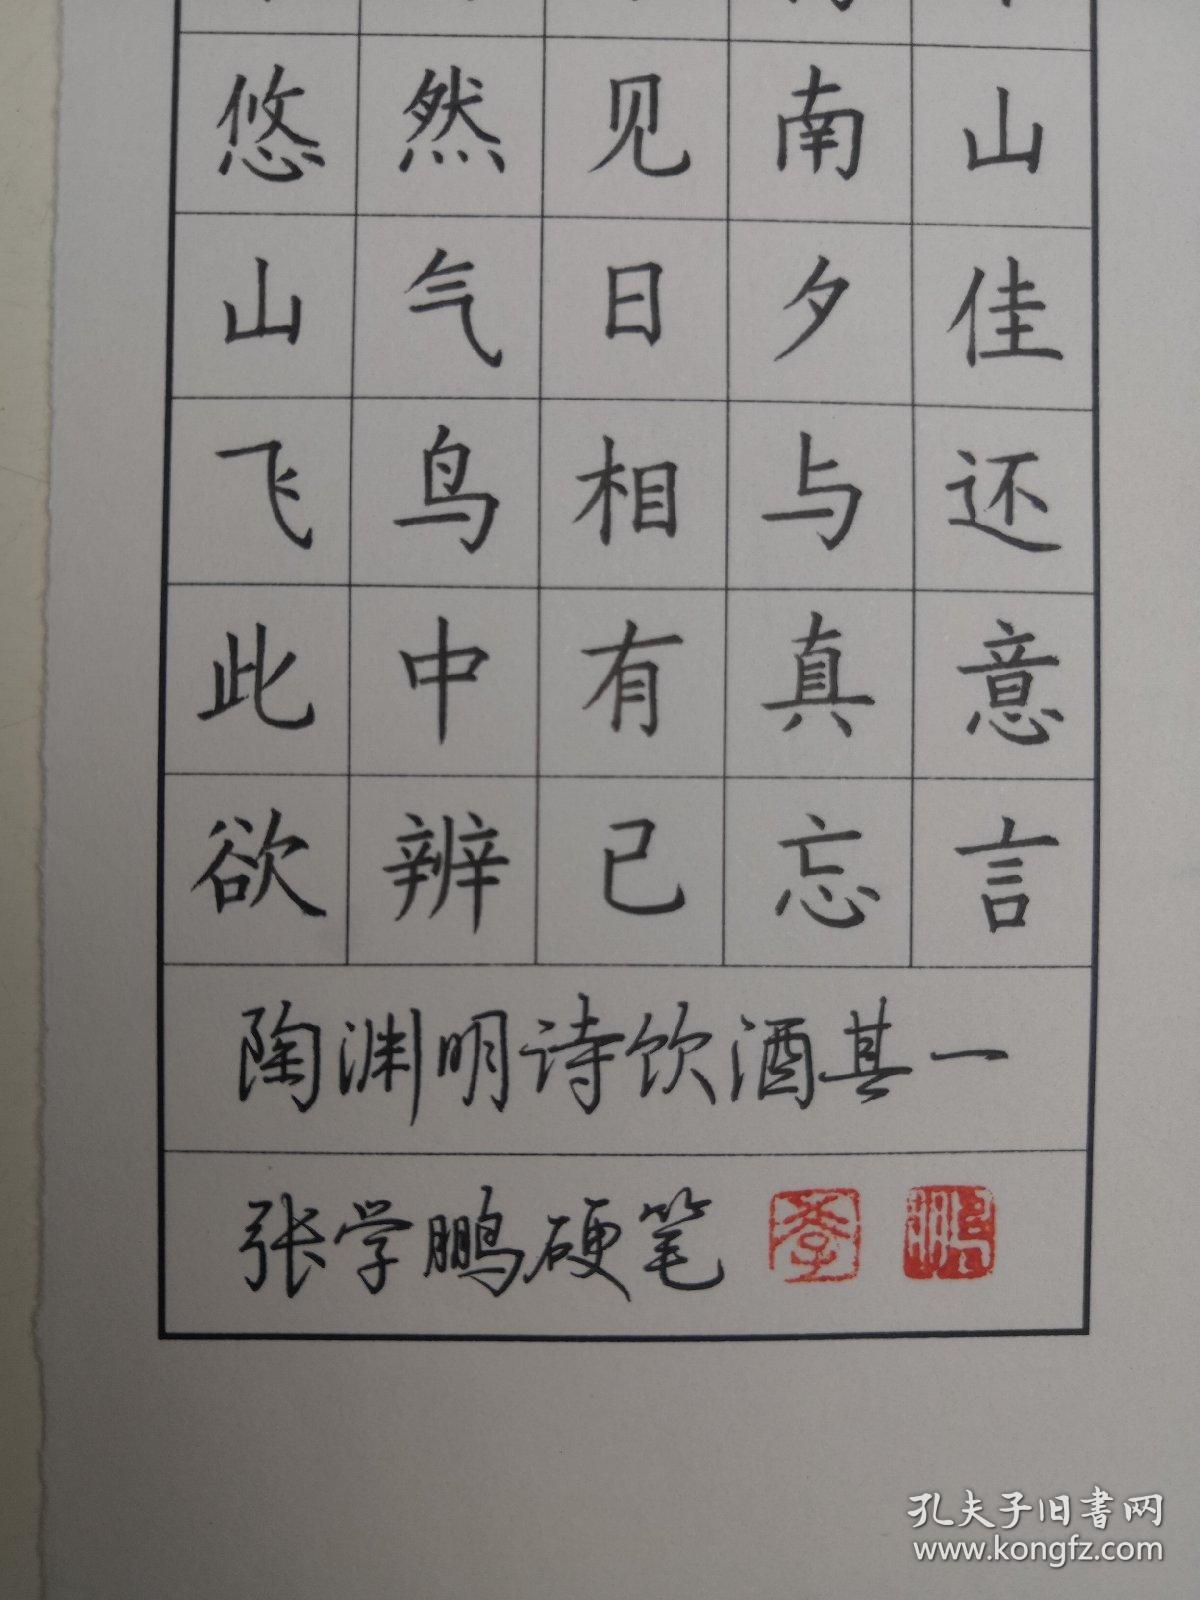 悠然见南山
山气日夕佳
飞鸟相与还
此中有真意
欲辨已忘言
陶渊明诗饮酒其一
张学鹏硬笔 学 鹏
孔夫子旧书网
www.kongfz.com